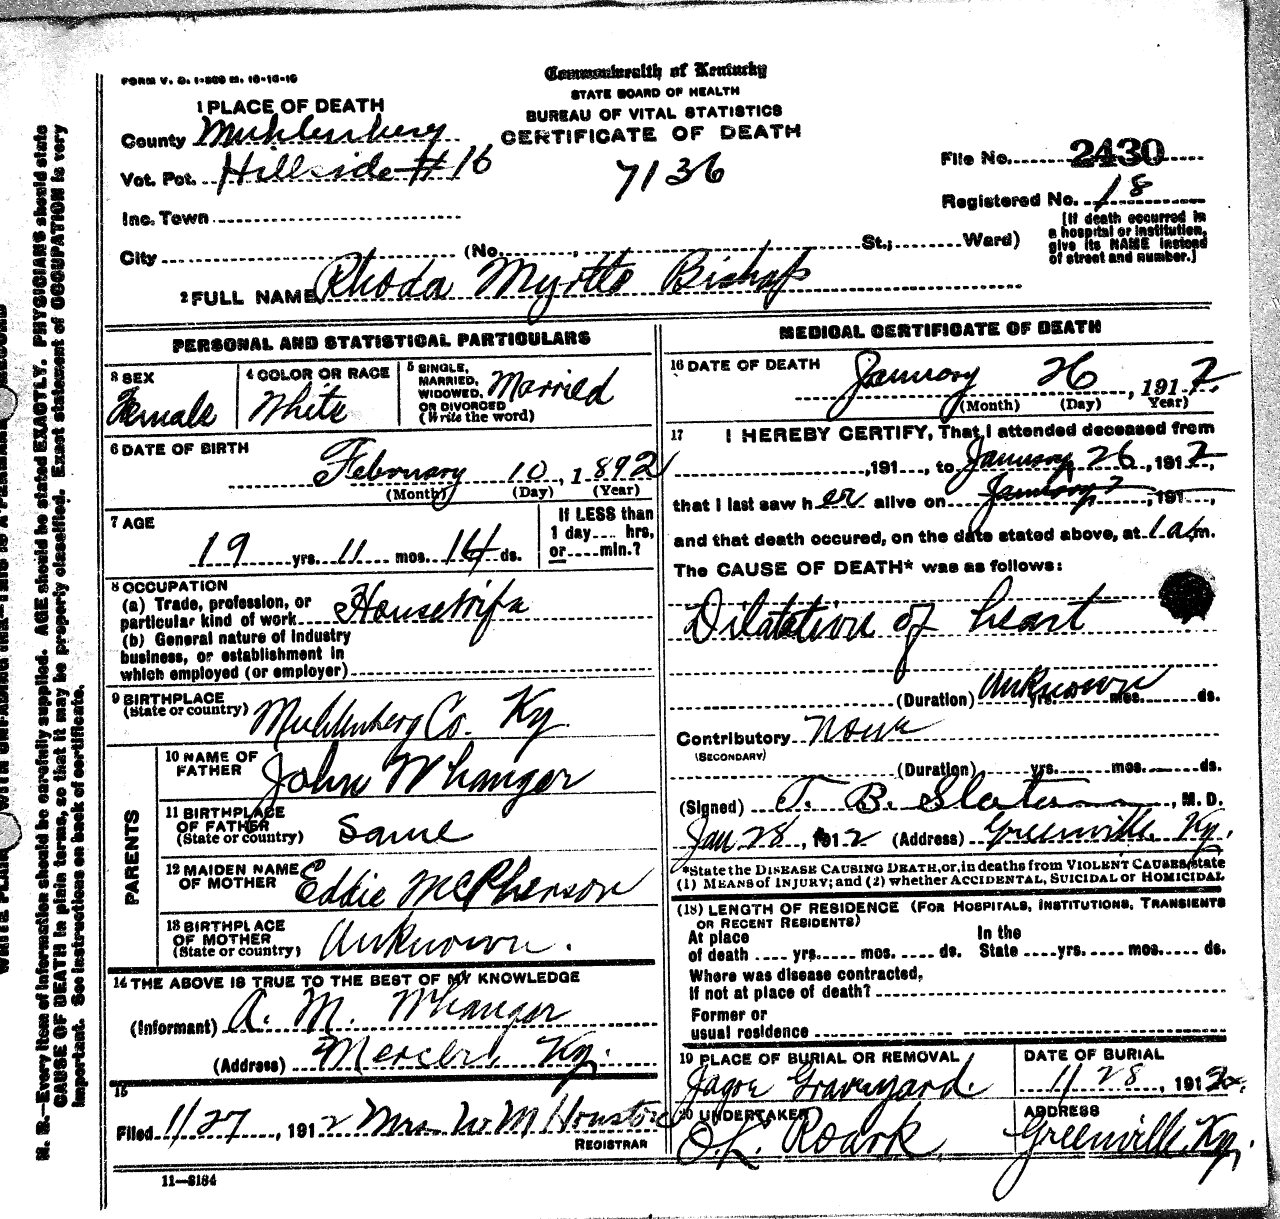 FORM V. S. 1-500 m. 10-10-10
Commonwealth of Kentucky
STATE BOARD OF HEALTH
BUREAU OF VITAL STATISTICS
CERTIFICATE OF DEATH
7136
1 PLACE OF DEATH
County Muhlenberg
Vot. Pct. Hillside #16
Inc. Town
City (No. , St.; Ward)
File No. 2430
Registered No. 18
[If death occurred in
a hospital or institution,
give its NAME instead
of street and number.]
2 FULL NAME Rhoda Myrtle Bishop
PERSONAL AND STATISTICAL PARTICULARS
3 SEX
Female
4 COLOR OR RACE
White
5 SINGLE,
MARRIED,
WIDOWED,
OR DIVORCED
(Write the word)
Married
6 DATE OF BIRTH
February 10, 1892
(Month) (Day) (Year)
7 AGE
19 yrs. 11 mos. 14 ds.
If LESS than
1 day.... hrs,
or.....min.?
8 OCCUPATION
(a) Trade, profession, or
particular kind of work Housewife
(b) General nature of industry
business, or establishment in
which employed (or employer)
9 BIRTHPLACE
(State or country) Muhlenberg Co. Ky.
PARENTS
10 NAME OF
FATHER John Whanger
11 BIRTHPLACE
OF FATHER
(State or country) Same
12 MAIDEN NAME
OF MOTHER Eddie McPherson
13 BIRTHPLACE
OF MOTHER
(State or country) Unknown.
14 THE ABOVE IS TRUE TO THE BEST OF MY KNOWLEDGE
(Informant) A. M. Whanger
(Address) Mercer, Ky.
15
Filed 1/27, 1912 Mrs W M Houston
REGISTRAR
11-3184
MEDICAL CERTIFICATE OF DEATH
16 DATE OF DEATH January 26, 1912
(Month) (Day) (Year)
17 I HEREBY CERTIFY, That I attended deceased from
,191..., to January 26, 1912,
that I last saw her alive on January ,191...,
and that death occured, on the date stated above, at 1 a.m.
The CAUSE OF DEATH* was as follows:
Dilatation of heart
(Duration) unknown yrs. mos. ds.
Contributory None
(SECONDARY)
(Duration) yrs. mos. ds.
(Signed) T. B. Slaton, M. D.
Jan 28, 1912 (Address) Greenville Ky.
*State the DISEASE CAUSING DEATH, or, in deaths from VIOLENT CAUSES, state
(1) MEANS of INJURY; and (2) whether ACCIDENTAL, SUICIDAL or HOMICIDAL
(18) LENGTH OF RESIDENCE (FOR HOSPITALS, INSTITUTIONS, TRANSIENTS
OR RECENT RESIDENTS)
At place
of death .... yrs. mos. ds.
In the
State ....yrs. mos. ds.
Where was disease contracted,
If not at place of death?
Former or
usual residence
19 PLACE OF BURIAL OR REMOVAL
Jagoe Graveyard.
DATE OF BURIAL
1/28, 1912
20 UNDERTAKER
O. K. Roark
ADDRESS
Greenville, Ky.
N. B.—Every item of information should be carefully supplied. AGE should be stated EXACTLY. PHYSICIANS should state
CAUSE OF DEATH in plain terms, so that it may be properly classified. Exact statement of OCCUPATION is very
important. See instructions on back of certificate.